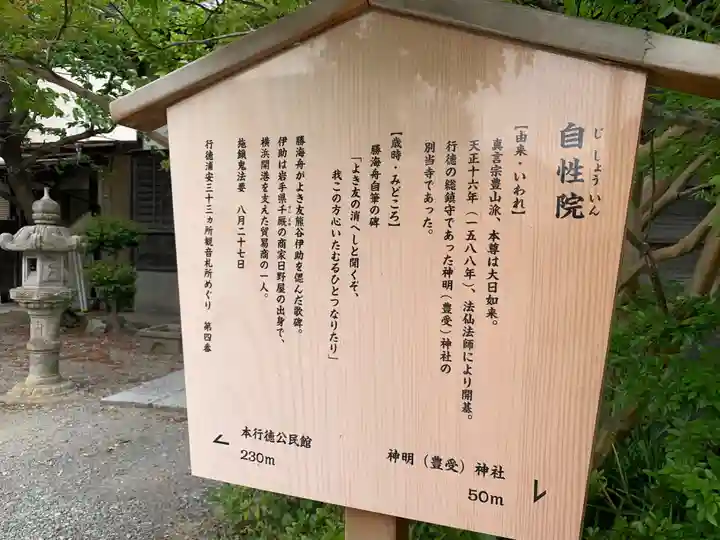 自性院
じしょういん
【由来・いわれ】
真言宗豊山派、本尊は大日如来。
天正十六年(一五八八年)、法仙法師により開基。
行徳の総鎮守であった神明(豊受)神社の
別当寺であった。
【歳時・みどころ】
勝海舟自筆の碑
「よき友の消へしと聞くぞ、
我この方心いたむるひとつなりたり」
勝海舟がよき友熊谷伊助を偲んだ歌碑。
伊助は岩手県千厩の商家日野屋の出身で、
横浜開港を支えた貿易商の一人。
施餓鬼法要 八月二十七日
行徳浦安三十三カ所観音札所めぐり 第四番
本行徳公民館
230m
神明(豊受)神社
50m